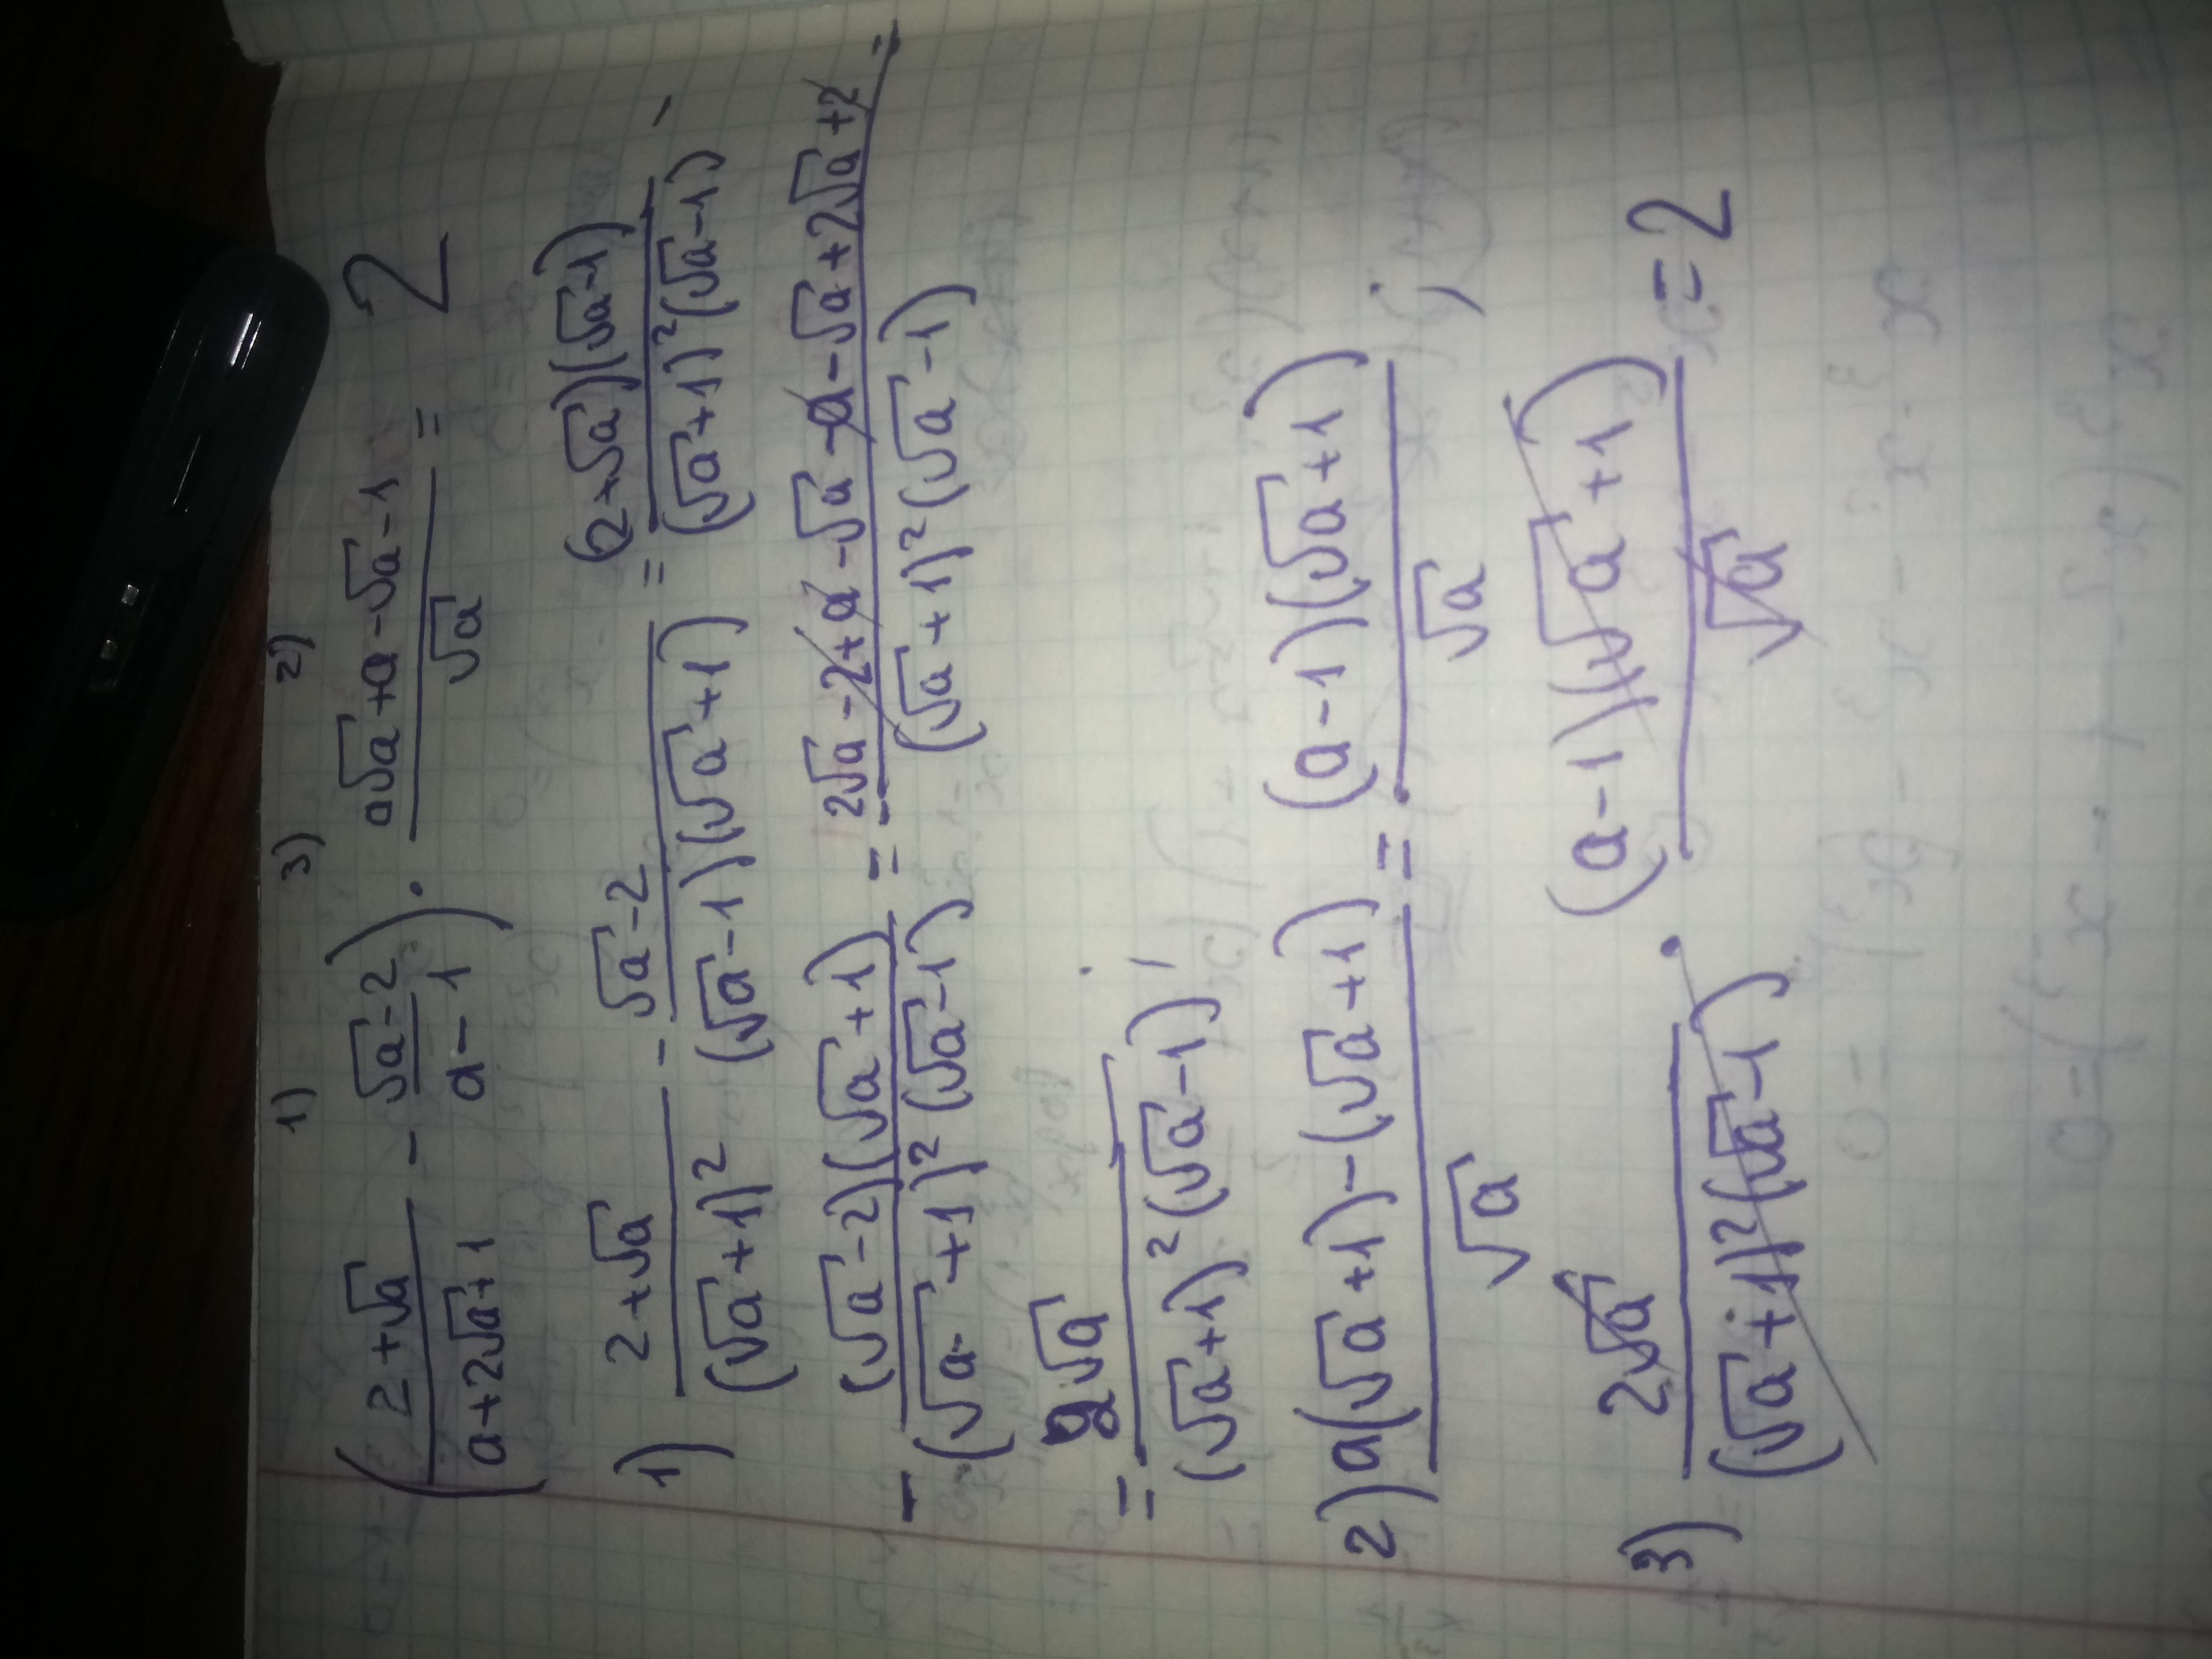 1) 3) 2)
((2+√a)/(a+2√a+1) - (√a-2)/(a-1)) · (a√a+a-√a-1)/√a = 2
1) (2+√a)/(√a+1)² - (√a-2)/((√a-1)(√a+1)) = ((2+√a)(√a-1))/((√a+1)²(√a-1)) -
- ((√a-2)(√a+1))/((√a+1)²(√a-1)) = (2√a-2+a-√a-a-√a+2√a+2)/((√a+1)²(√a-1)) =
= 2√a/((√a+1)²(√a-1)) ;
2) (a(√a+1)-(√a+1))/√a = ((a-1)(√a+1))/√a ;
3) 2√a/((√a+1)²(√a-1)) · ((a-1)(√a+1))/√a = 2